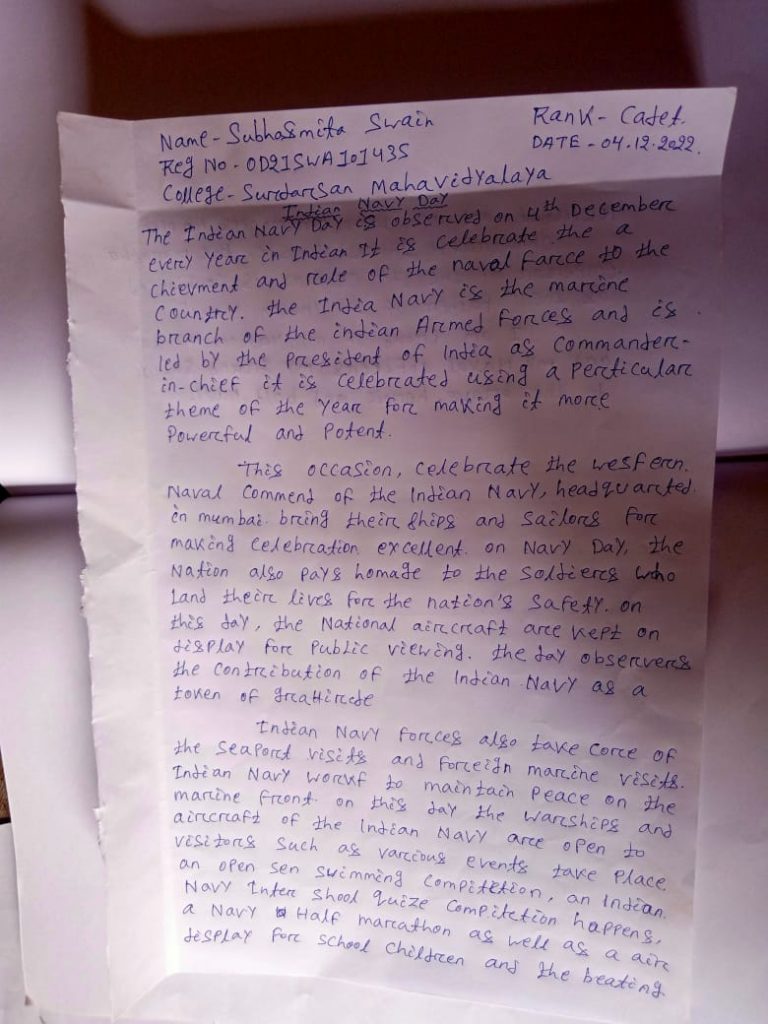 Name - Subhasmita Swain
Rank - Cadet.
Reg No - OD21SWA101435
DATE - 04.12.2022.
College - Surdarsan Mahavidyalaya
Indian Navy Day
The Indian Navy Day is observed on 4th December
every year in Indian It is celebrate the a
chievment and role of the naval farce to the
country. the India Navy is the marine
branch of the indian Armed forces and is
led by the president of India as commander-
in-chief it is celebrated using a perticular
theme of the year for making it more
powerful and potent.
This occasion, celebrate the western.
Naval commend of the Indian Navy, headquarted
in mumbai bring their ships and sailors for
making celebration excellent. on Navy Day, the
Nation also pays homage to the soldiers who
land their lives for the nation's safety. on
this day, the National aircraft are kept on
display for public viewing. the day observers
the contribution of the Indian Navy as a
token of
Indian Navy forces also take core of
the seaport visits and foreign marine visits.
Indian Navy to maintain peace on the
marine front. on this day the warships and
aircraft of the Indian Navy are open to
visitors such as various events take place
an open sen swimming compitetion, an Indian.
Navy Inter shool quize compitetion happens,
a Navy Half marathon as well as a air
display for school children and the beating